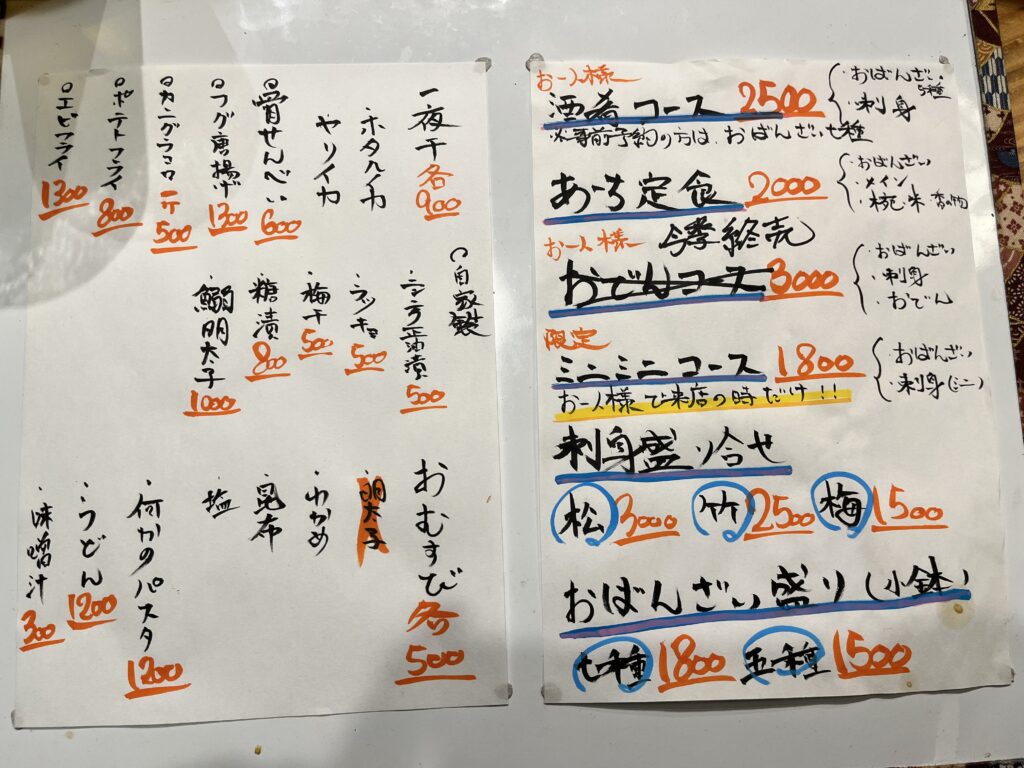 一夜干各900
ホタルイカ
ヤリイカ
○骨せんべい600
○フグ唐揚げ1300
○カニグラコロ一ケ500
○ポテトフライ800
○エビフライ1300
○自家製
・500
・ラッキョ500
・梅干500
・糠漬800
・鰯明太子1000
おむすび各500
・明太子
・わかめ
・昆布
・塩
・何かのパスタ1200
・うどん1200
・味噌汁300
お一人様
酒肴コース 2500
・おばんざい5種
・刺身
※事前予約の方は、おばんざい七種
あーち定食 2000
・おばんざい
・メイン
・椀、米、香の物
お一人様 今季終売
おでんコース 3000
・おばんざい
・刺身
・おでん
限定
ミニミニコース 1800
・おばんざい
・刺身(ミニ)
お一人様で来店の時だけ!!
刺身盛り合せ
松3000 竹2500 梅1500
おばんざい盛り(小鉢)
七種1800 五種1500